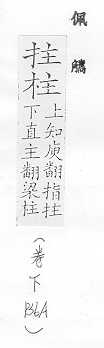 佩觿
拄柱
上知庾翻指拄
下直主翻梁柱
（卷下）